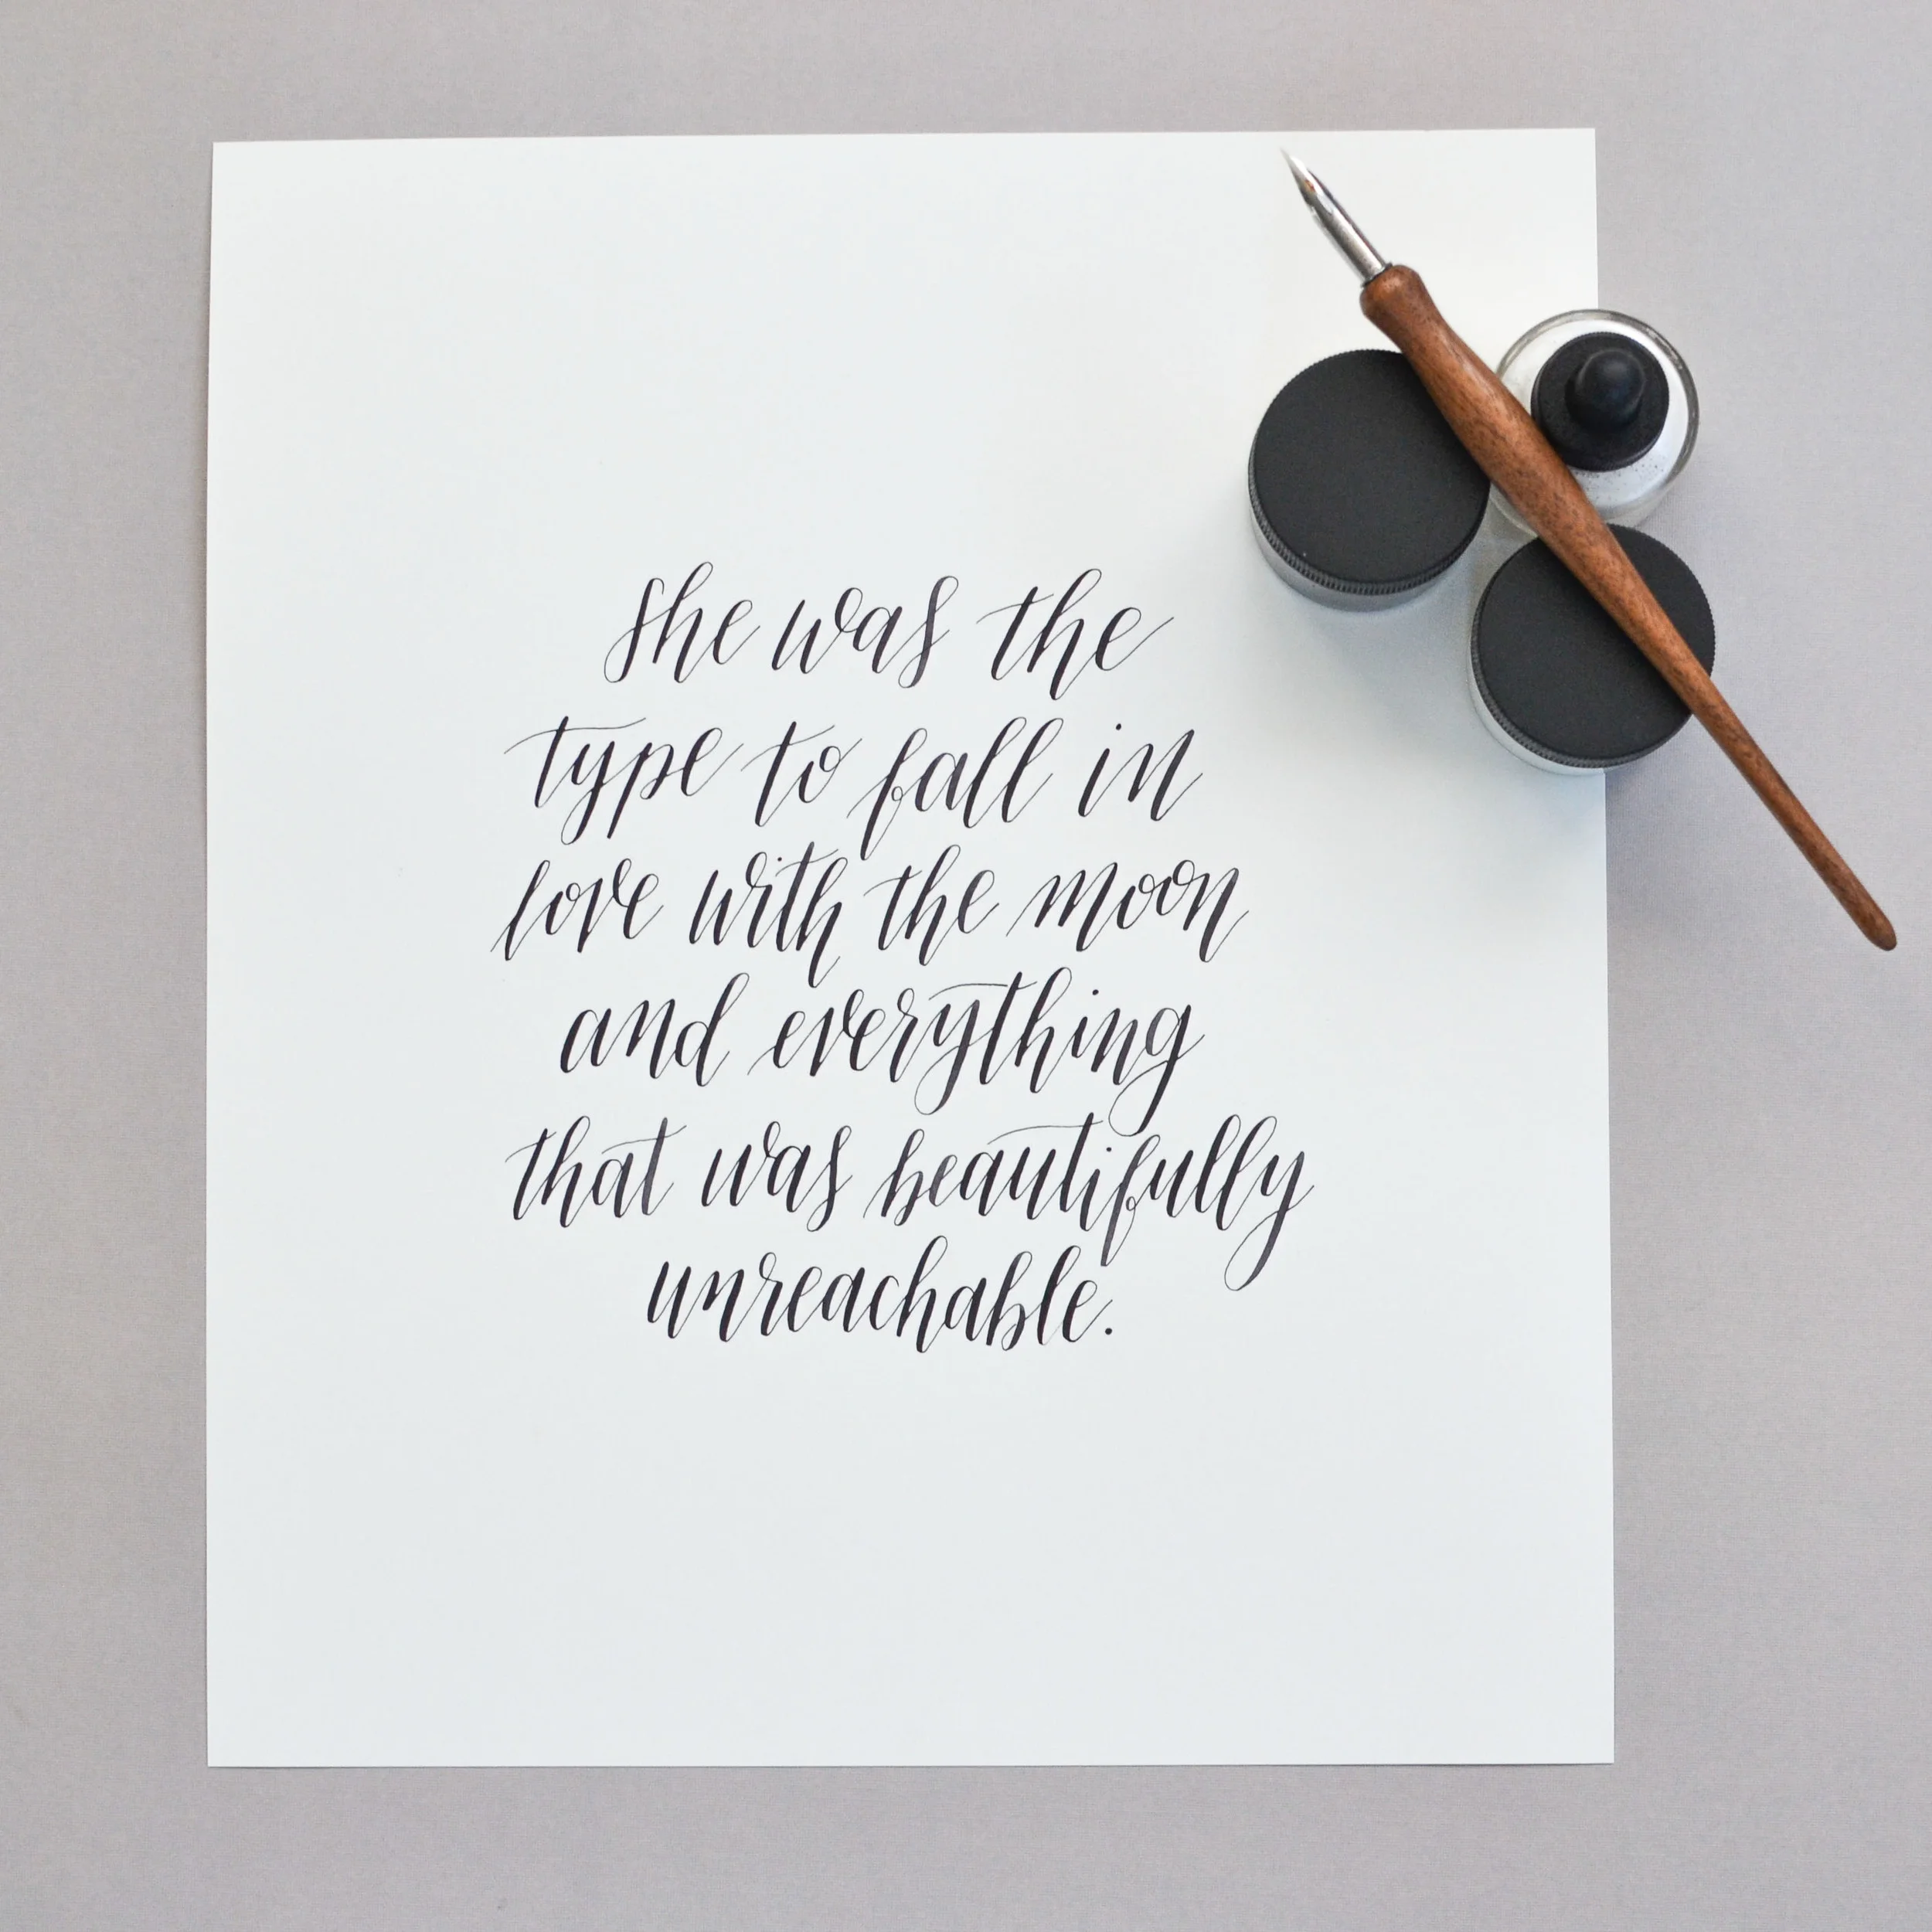 she was the
type to fall in
love with the moon
and everything
that was beautifully
unreachable.